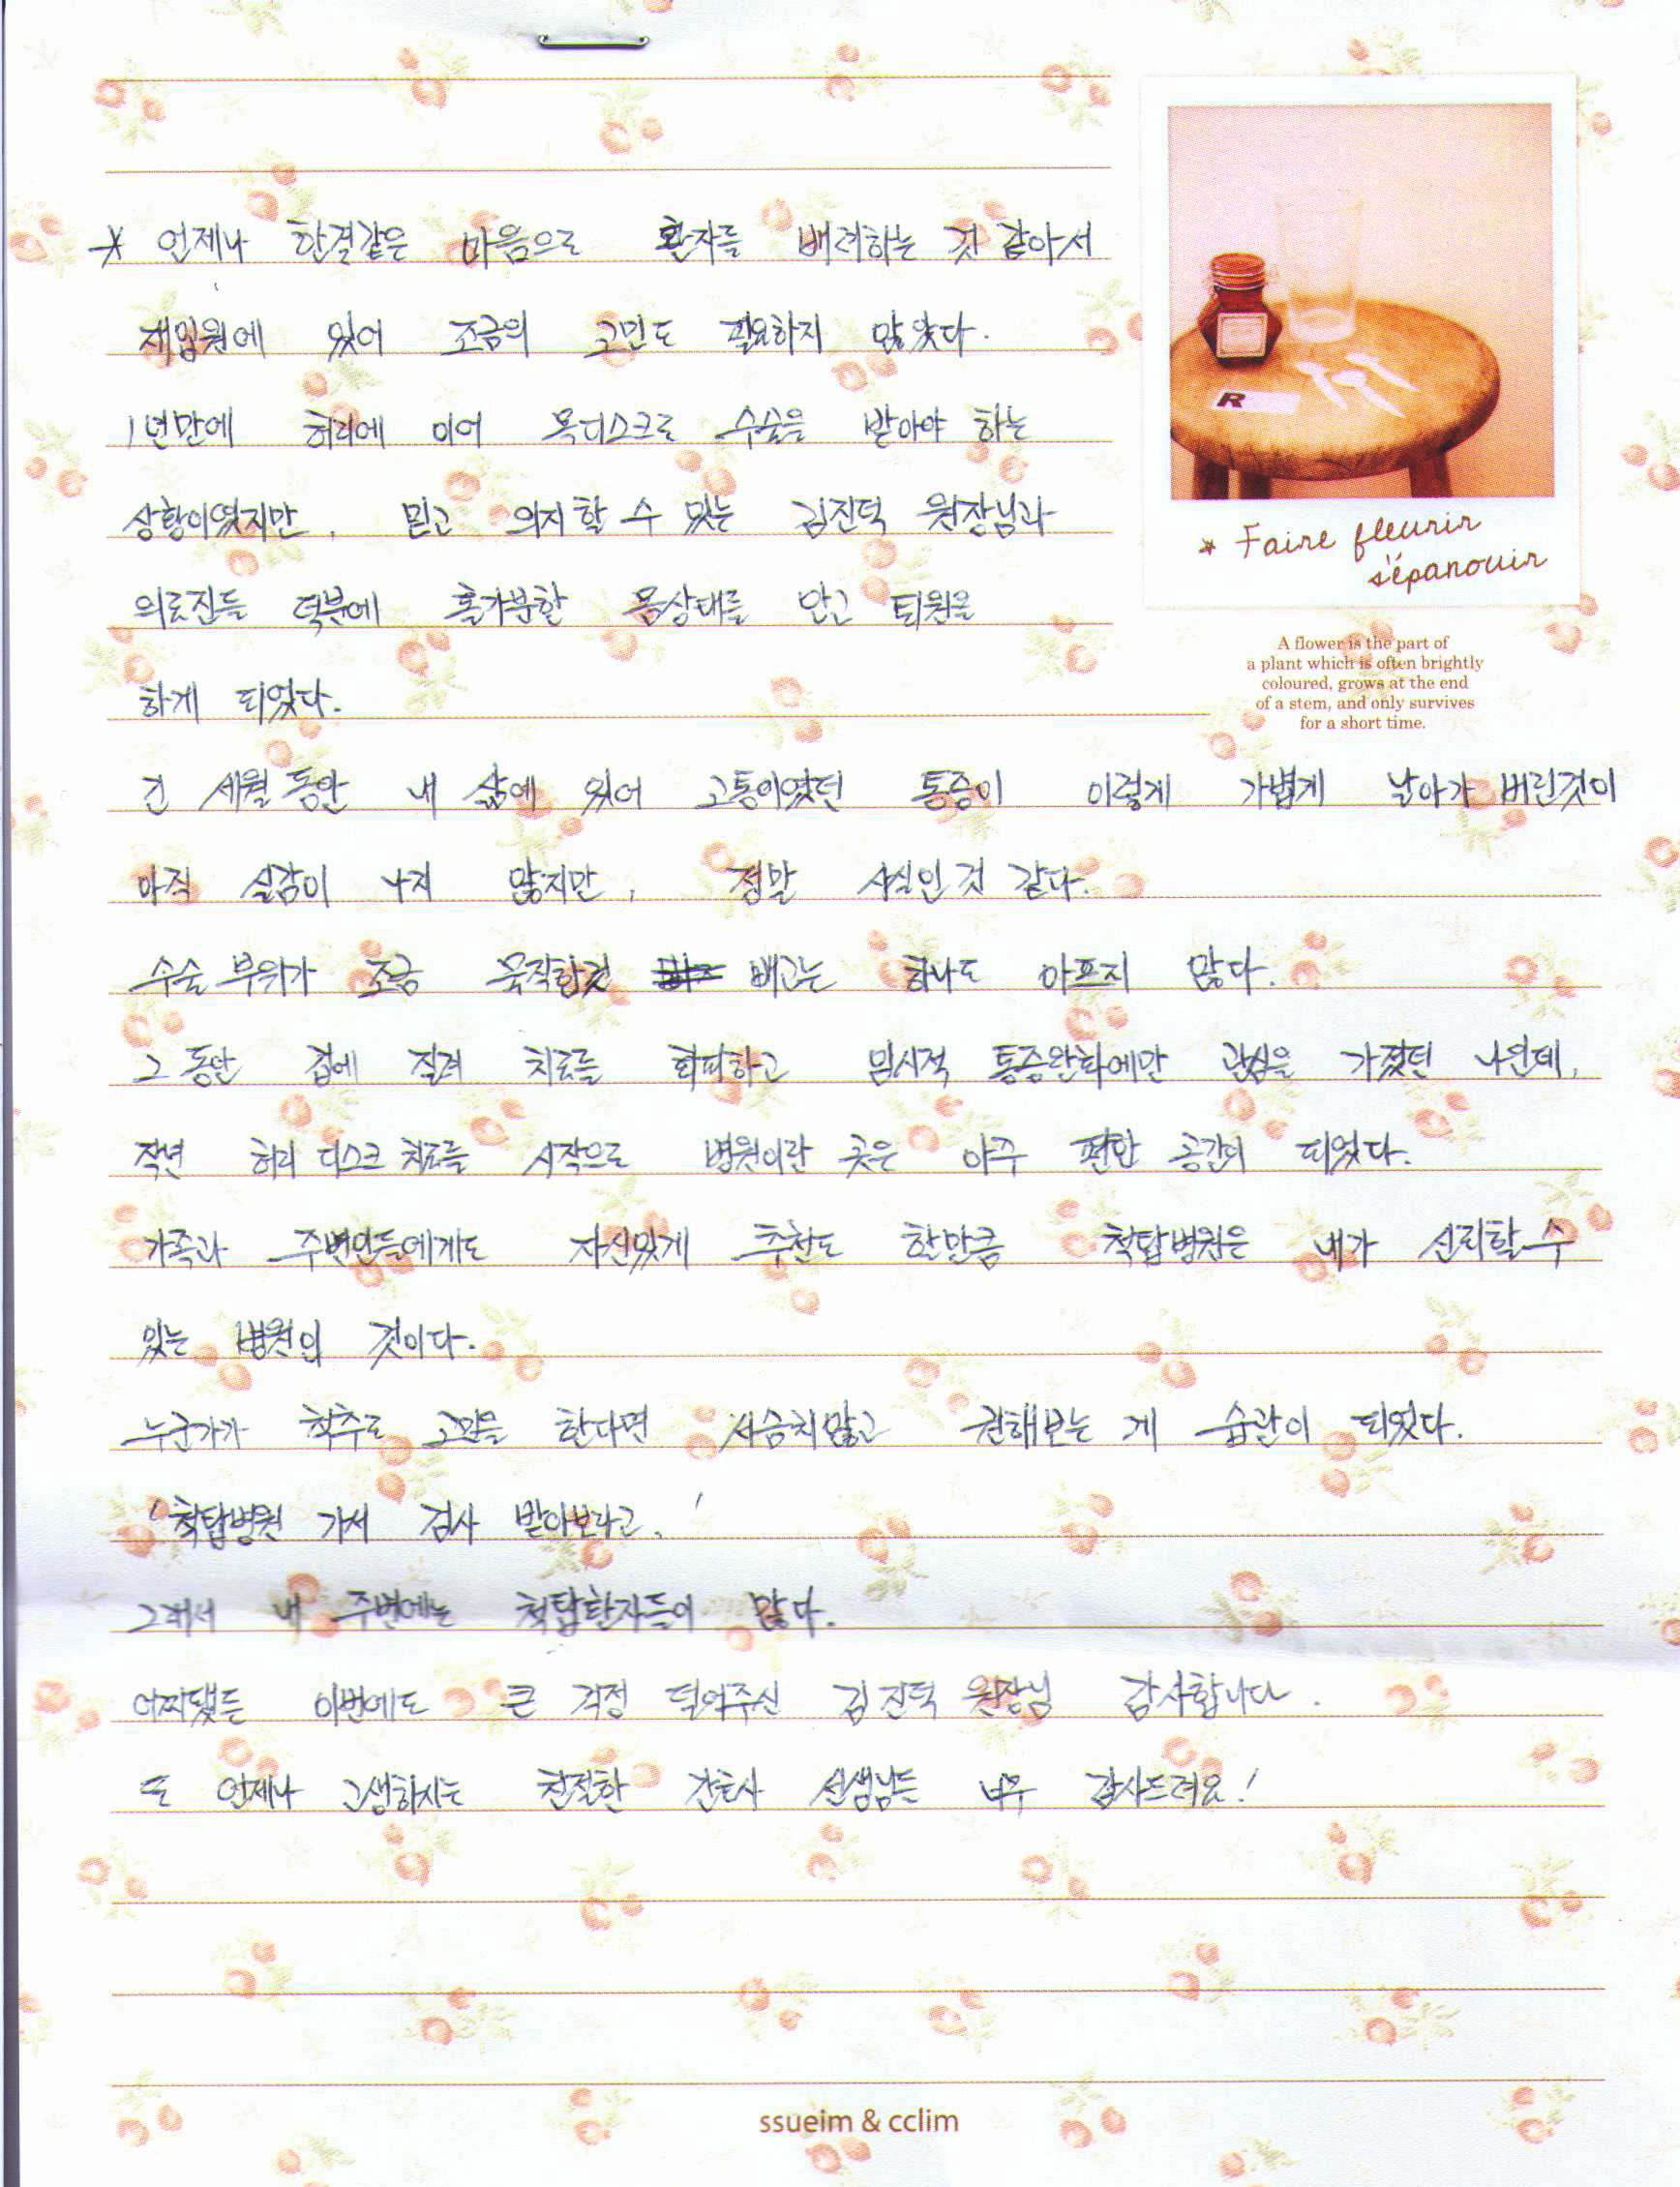 * 언제나 한결같은 마음으로 환자를 배려하는 것 같아서
재입원에 있어 조금의 고민도 필요하지 않았다.
1년만에 허리에 이어 목디스크로 수술을 받아야 하는
상황이였지만, 믿고 의지할 수 있는 김진덕 원장님과
의료진들 덕분에 홀가분한 몸상태를 안고 퇴원을
하게 되었다.
긴 세월 동안 내 삶에 있어 고통이였던 통증이 이렇게 가볍게 날아가 버린것이
아직 실감이 나지 않지만, 정말 사실인 것 같다.
수술 부위가 조금 묵직한것 빼고는 하나도 아프지 않다.
그 동안 겁에 질려 치료를 회피하고 임시적 통증완화에만 관심을 가졌던 나인데,
작년 허리 디스크 치료를 시작으로 병원이란 곳은 아주 편한 공간이 되었다.
가족과 주변인들에게도 자신있게 추천도 할만큼 척탑병원은 내가 신뢰할 수
있는 병원인 것이다.
누군가가 척추로 고민을 한다면 서슴치않고 권해보는 게 습관이 되었다.
'척탑병원 가서 검사 받아보라고.'
그래서 내 주변에는 척탑환자들이 많다.
어찌됐든 이번에도 큰 걱정 덜어주신 김진덕 원장님 감사합니다.
또 언제나 고생하시는 친절한 간호사 선생님들 너무 감사드려요!
R
* Faire fleurir
s'épanouir
A flower is the part of
a plant which is often brightly
coloured, grows at the end
of a stem, and only survives
for a short time.
ssueim & cclim